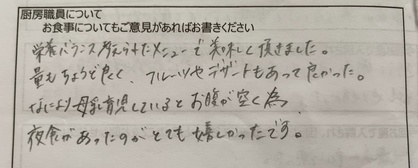 厨房職員について
お食事についてもご意見があればお書きください
栄養バランス考えられたメニューで美味しく頂きました。
量もちょうど良く、フルーツやデザートもあって良かった。
なにより母乳育児しているとお腹が空く為、
夜食があったのがとても嬉しかったです。